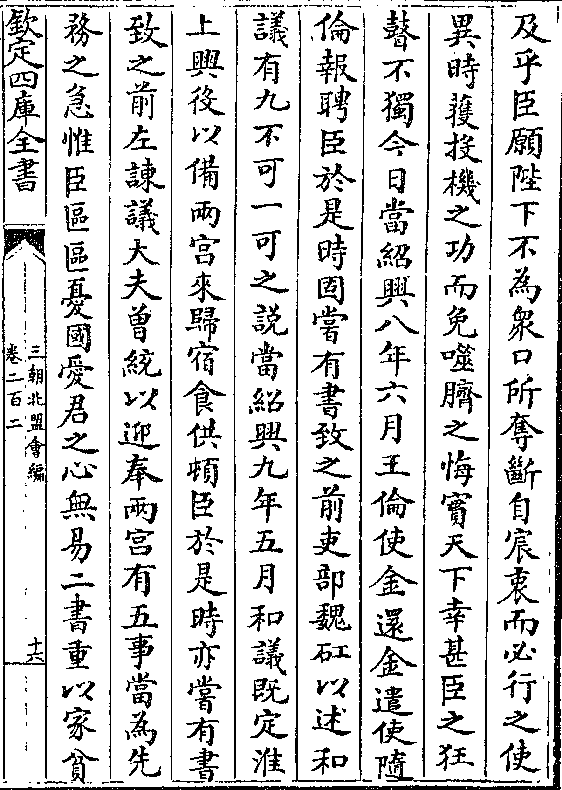 及乎臣願陛下不為衆口所奪斷自宸衷而必行之使
異時䕶投機之功而免噬臍之悔實天下幸甚臣之狂
瞽不獨今日當紹興八年六月王倫使金還金遣使隨
倫報聘臣於是時固嘗有書致之前吏部魏矼以述和
議有九不可一可之説當紹興九年五月和議既定淮
上興役以備兩宫來歸宿食供頓臣於是時亦嘗有書
致之前左諫議大夫曾統以迎奉兩宫有五事當為先
務之急惟臣區區憂國愛君之心無易二書重以家貧
欽定四庫全書
三朝北盟會編
卷二百二
十六